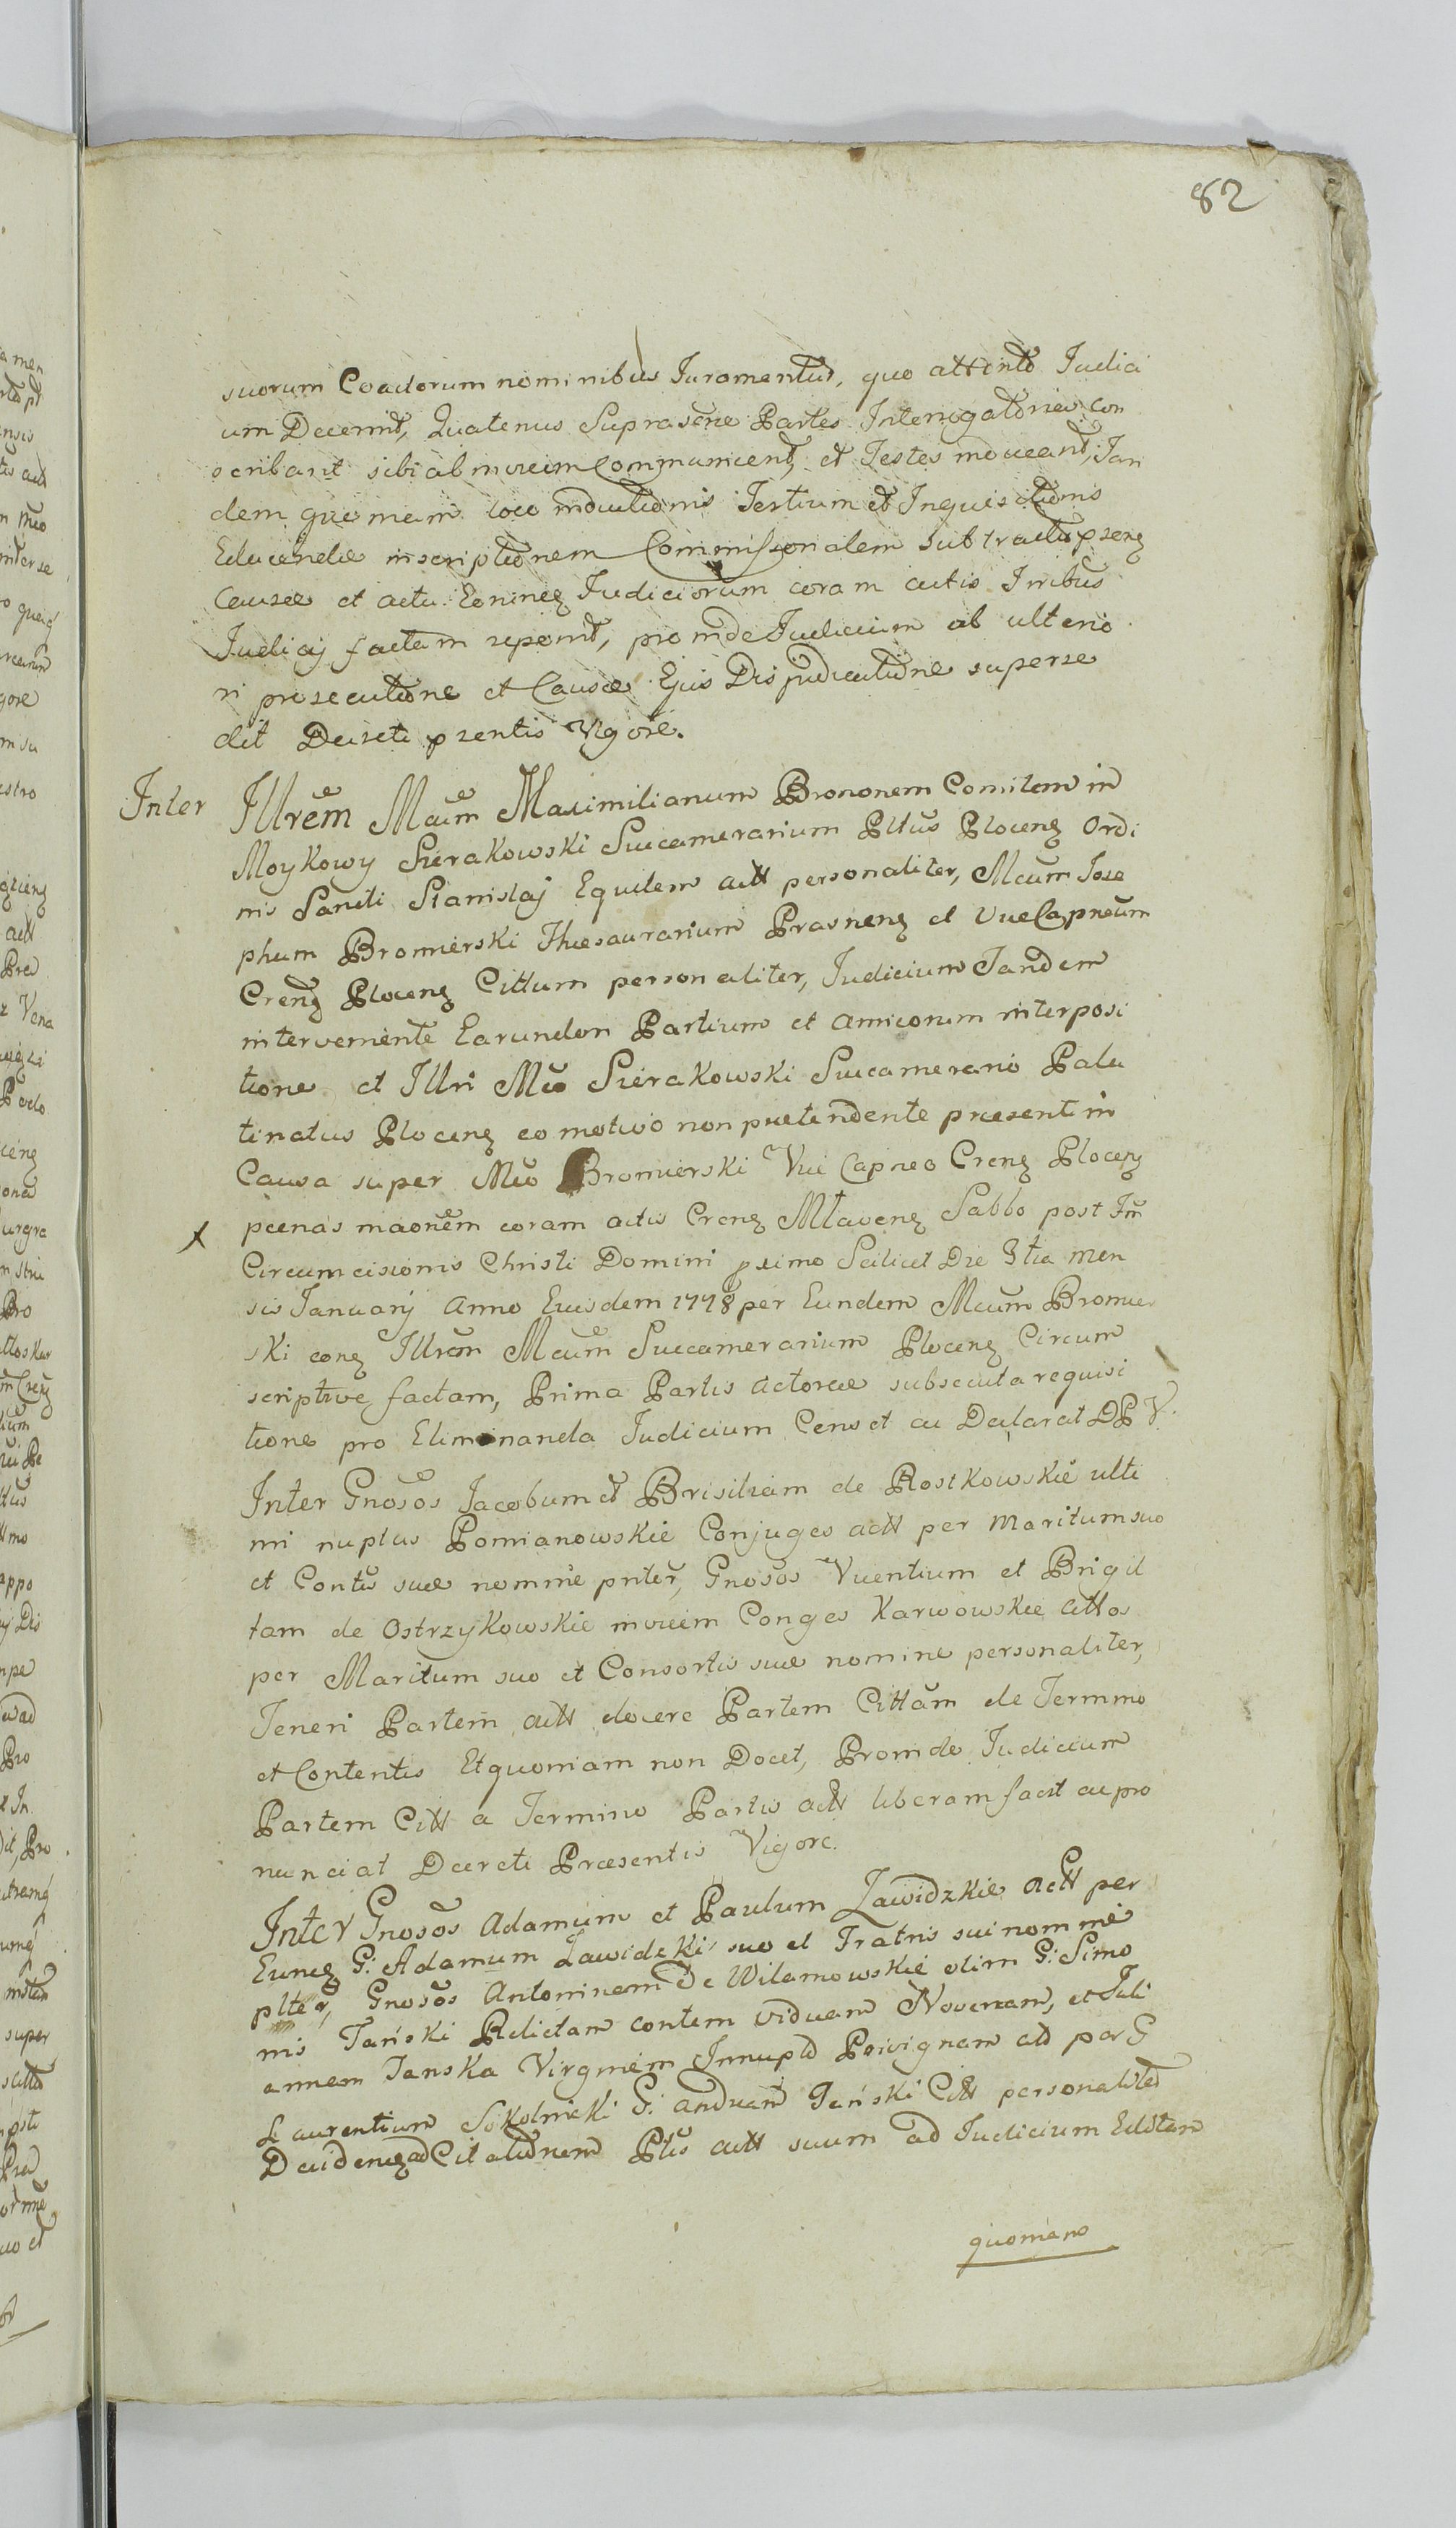 82
suorum Coactorum nominibus Juramentum, quo attento Judici
um Decernit, Quatenus Suprascrie Partes Interrogatoriae con
scribant sibi ab invicem Communicent, et Testes inducant, Tan
dem que mam loco inductionis Testium et Inquisitionis
Educendae inscriptionem Commissionalem sub tractu psenz
Causae et actu Eorunez Judiciorum coram actis Inribus
Judicij factam reponit, proinde Judicium ab ulterio
ri prosecutione et Causae Ejus Disjudicatione superse
dit Decreti psentis Vigore.
Inter Illrem Mcum Maximilianum Brononem Comitem in
Moykowy Sierakowski Succamerarium Pltus Plocenz Ordi
nis Sancti Stanislaj Equitem actt personaliter, Mcum Jose
phum Bromierski Thesaurarium Prasnenz et ViceCapneum
Crenz Plocenz Cittum personaliter, Judicium Tandem
interveniente Earundem Partium et amicorum interposi
tione et Illri Mco Sierakowski Succamerario Pala
tinatus Plocenz eo motivo non praetendente praesenti in
Causa super Mco Bromierski Vice Capneo Crenz Plocenz
paenas maonem coram actis Crenz Mlavenz Sabbo post Fm
Circumcisionis Christi Domini pximo Scilicet Die 3tia Men
sis Januarij Anno Eiusdem 1778 per Eundem Mcum Bromier
ski conz Illrem Mcum Succamerarium Plocenz Circum
scriptive factam, Prima Partis actoreae subsecuta requisi
tione pro Eliminanda Judicium Censet ac Declarat DPV.
Inter Gnosos Jacobum et Brisiliam de Rostkowskie ulti
mi nuptus Pomianowskie Conjuges actt per Maritum suo
et Contis suae nomine pnter, Gnosos Vicentium et Brigit
tam de Ostrzykowskie invicem Conges Karwowskie Cittos
per Maritum suo et Consortis suae nomine personaliter,
Teneri Partem actt docere Partem Cittam de Termino
et Contentis Et quoniam non Docet, Proinde Judicium
Partem Citt a Termino Partis actt liberam facit ac pro
nunciat Decreti Praesentis Vigore.
Inter Gnosos Adamum et Paulum Zawidzkie actt per
Eunez G: Adamum Zawidzki suo et Fratris sui nomine
plter, Gnosos Antoninam de Wilamowskie olim G: Simo
nis Tański Relictam contem viduam Novercam, et Juli
annam Tanska Virginem Innupt Privignam act per G
Laurentium Sokolnicki G: andream Tański Citt personaliter
Decidenz ad Citationem Ptis actt suum ad Judicium Editam
quoniam